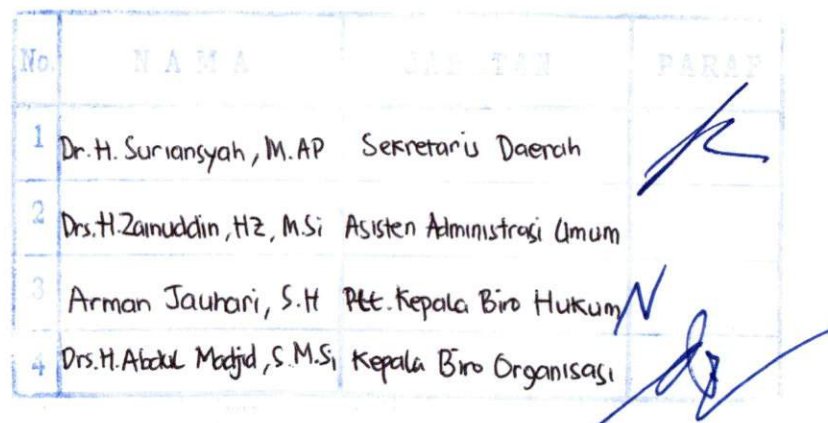 No. NAMA JABATAN PARAF
1 Dr. H. Suriansyah, M.AP Sekretaris Daerah
2 Drs.H.Zainuddin, HZ, M.Si Asisten Administrasi Umum
3 Arman Jauhari, S.H Plt. Kepala Biro Hukum
4 Drs.H.Abdul Madjid, S. M.Si Kepala Biro Organisasi